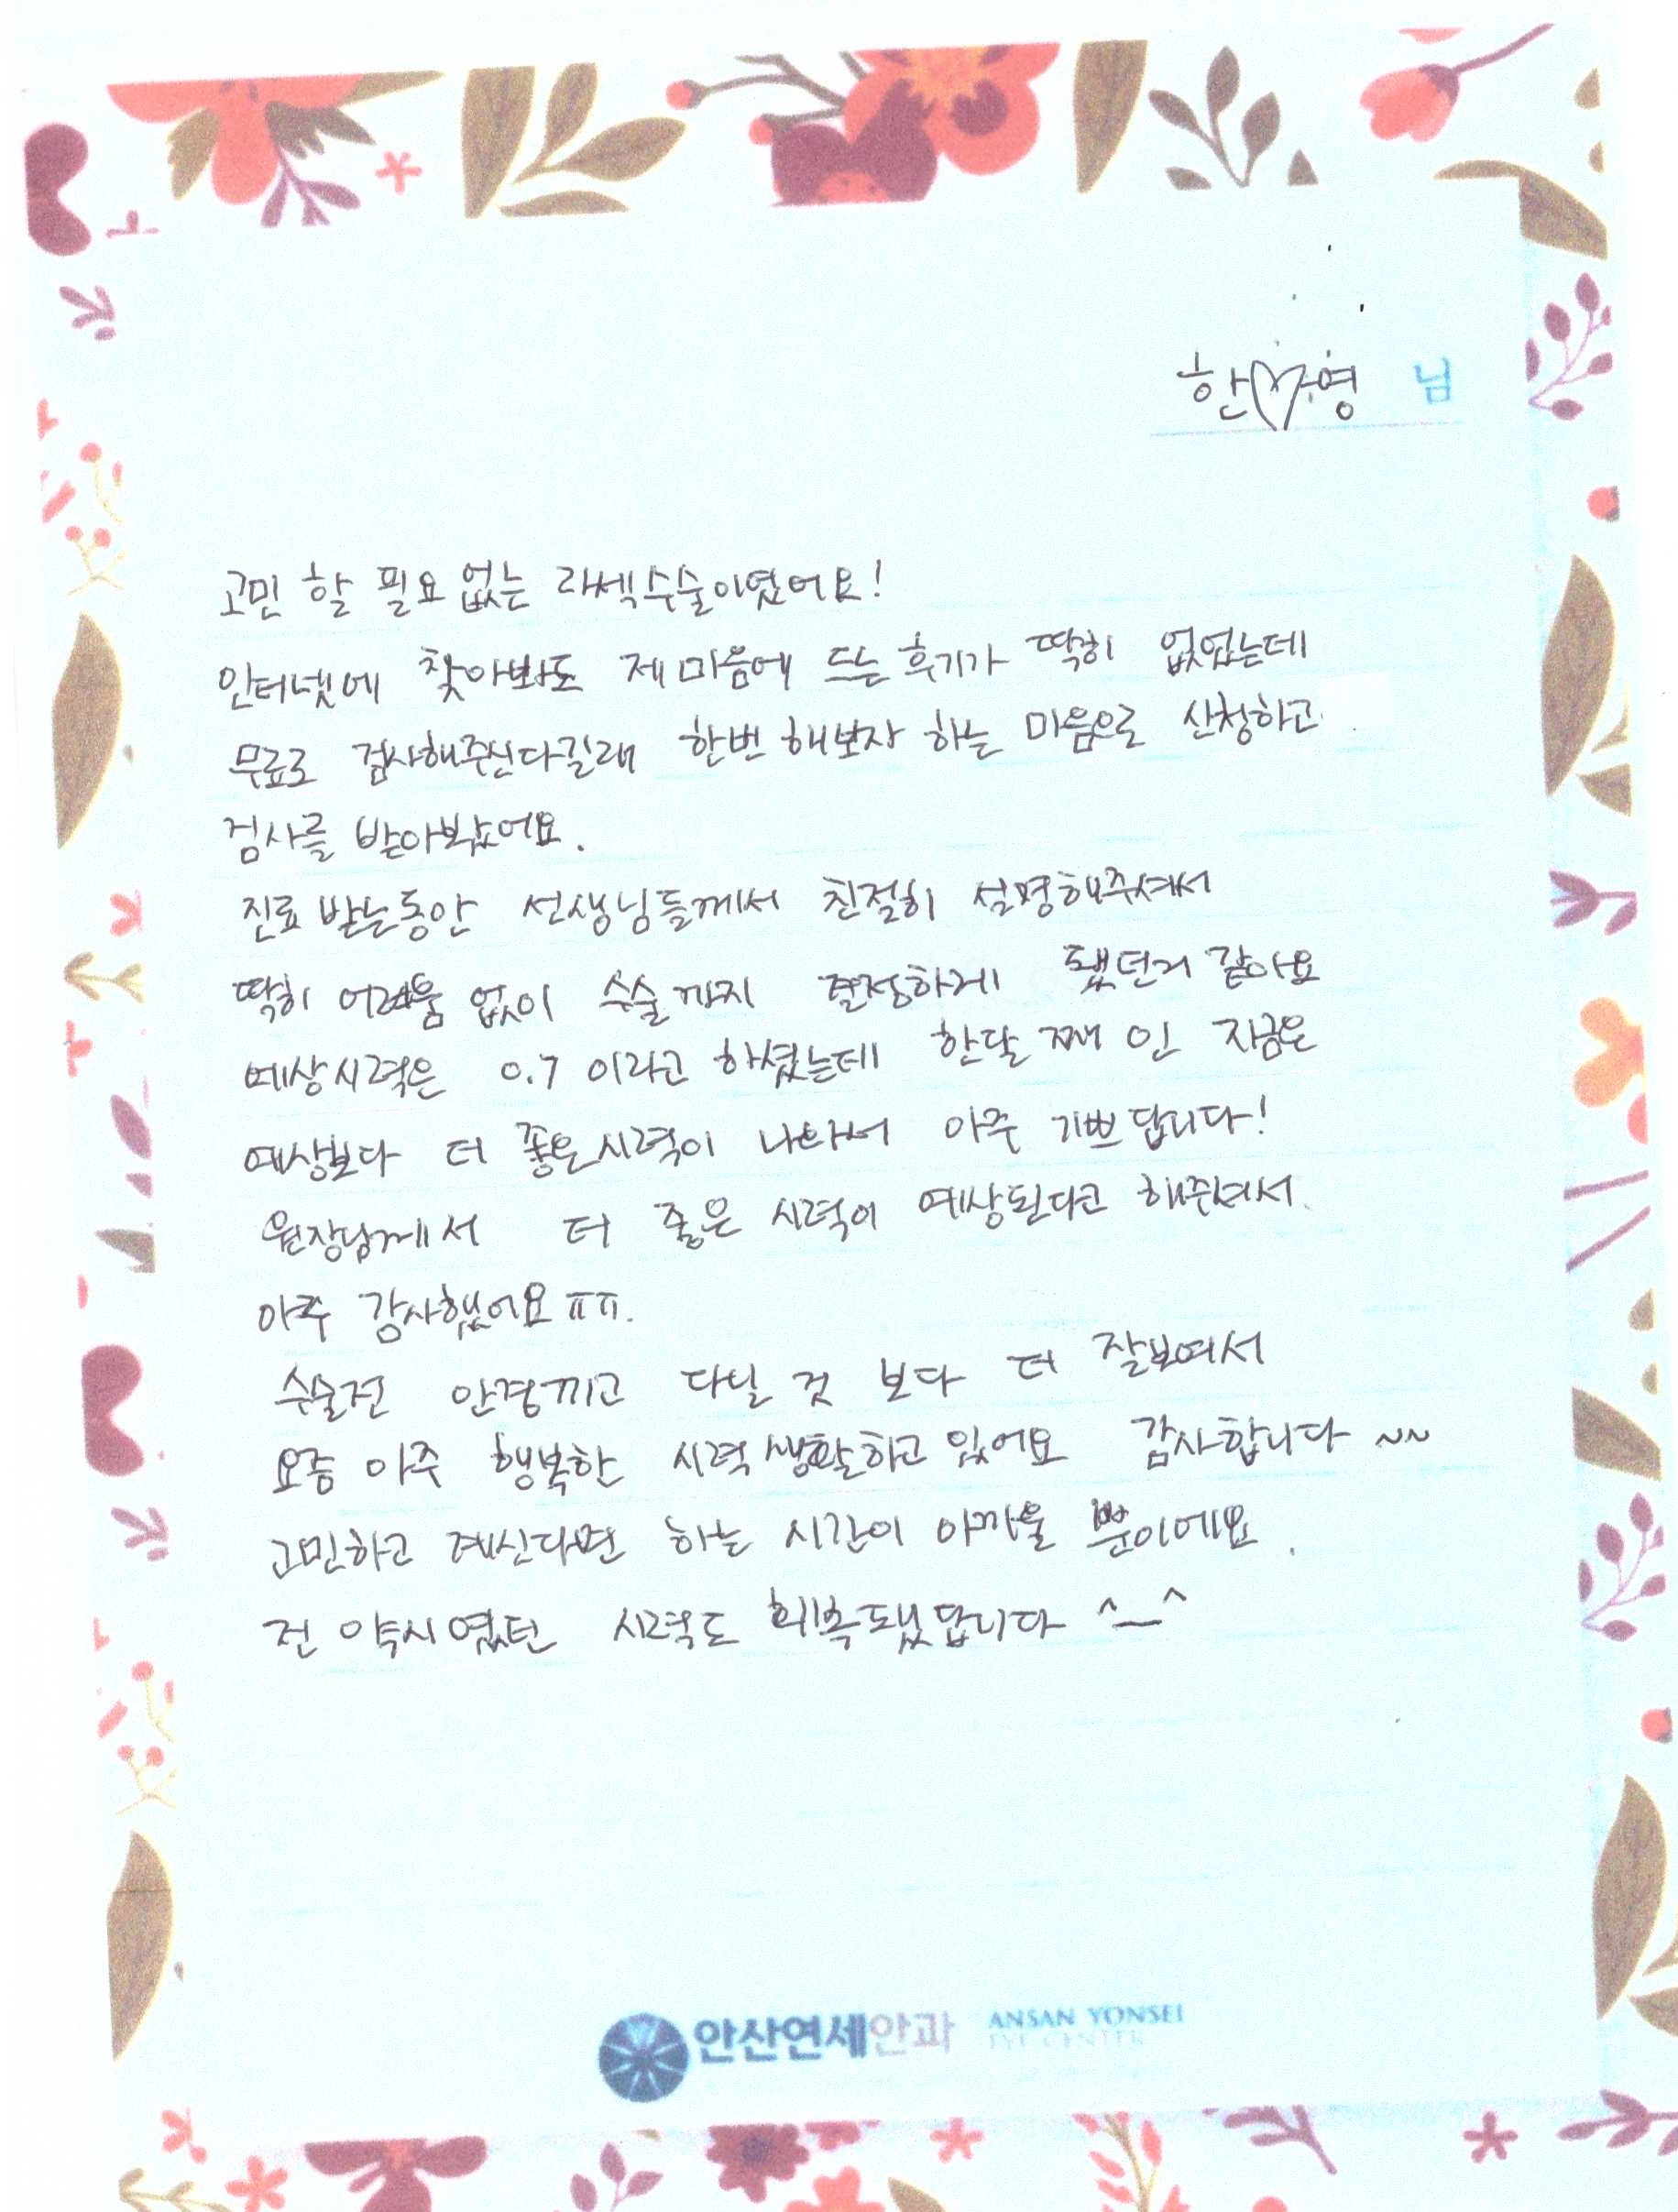 한♡영 님
고민 할 필요 없는 라섹수술이였어요!
인터넷에 찾아봐도 제 마음에 드는 후기가 딱히 없었는데
무료로 검사해주신다길래 한번 해보자 하는 마음으로 신청하고
검사를 받아보았어요.
진료 받는동안 선생님들께서 친절히 설명해주셔서
딱히 어려움 없이 수술까지 결정하게 됐던거 같아요
예상시력은 0.7 이라고 하셨는데 한달 째 인 지금은
예상보다 더 좋은시력이 나와서 아주 기쁘답니다!
원장님께서 더 좋은 시력이 예상된다고 해주셔서
아주 감사했어요ㅠㅠ.
수술전 안경끼고 다닐 것 보다 더 잘보여서
요즘 아주 행복한 시력생활하고 있어요 감사합니다 ~~
고민하고 계신다면 하는 시간이 아까울 뿐이에요.
전 약시였던 시력도 회복됐답니다 ^_^
안산연세안과 ANSAN YONSEI
EYE CENTER